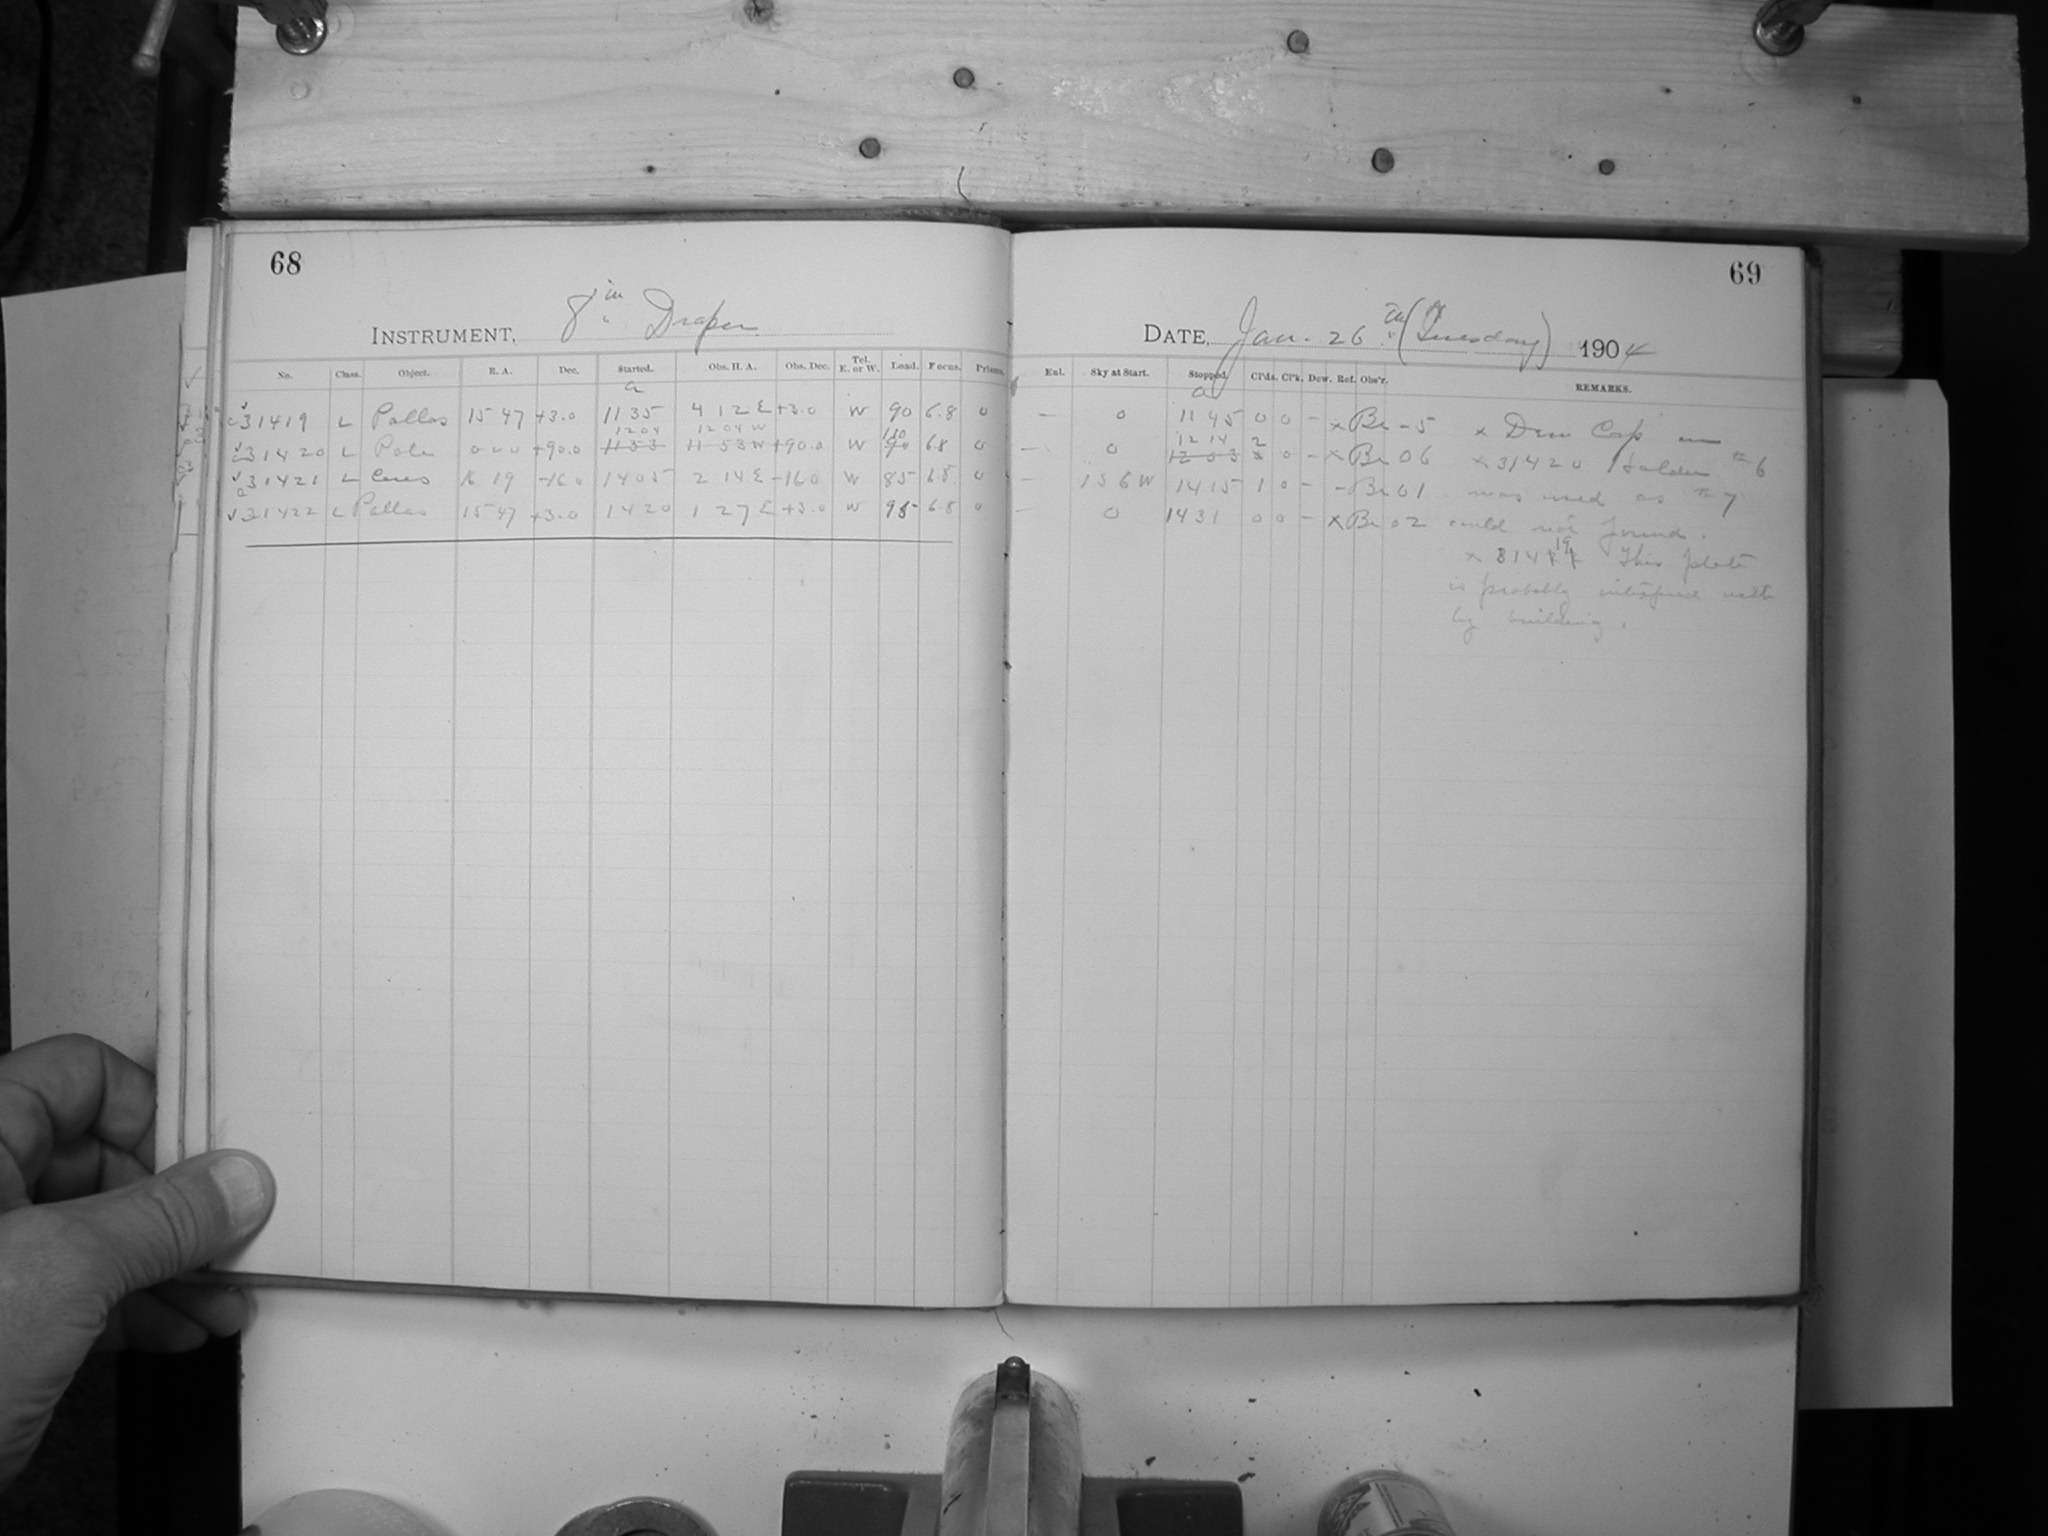 68
INSTRUMENT, 8 in Draper
No. Class. Object. R. A. Dec. Started. Obs. H. A. Obs. Dec. Tel. E. or W. Load. Focus. Prisms.
a
c31419 L Pallas 15 47 +3.0 11 35 4 12 E +3.0 W 90 6.8 0
12 04 12 04 W 110
c31420 L Pole 0 0 0 +90.0 11 53 11 53 W +90.0 W 90 6.8 0
31421 L Ceres 16 19 -16.0 14 05 2 14 E -16.0 W 85 6.8 0
31422 L Pallas 15 47 +3.0 14 20 1 27 E +3.0 W 95 6.8 0
69
DATE, Jan. 26 th (Tuesday) 1904
Enl. Sky at Start. Stopped. Cl'ds. Cl'k. Dew. Ref. Obs'r. REMARKS.
a
— 0 11 45 0 0 - x Br - 5 x Dew Cap on
12 14 2
— 0 12 03 0 - x Br 06 x 31420 Holder # 6
— 15 6 W 14 15 1 0 - - Br 01 was used as # 7
— 0 14 31 0 0 - x Br 02 could not found.
x 314 19 This plate
is probably interfered with
by building.